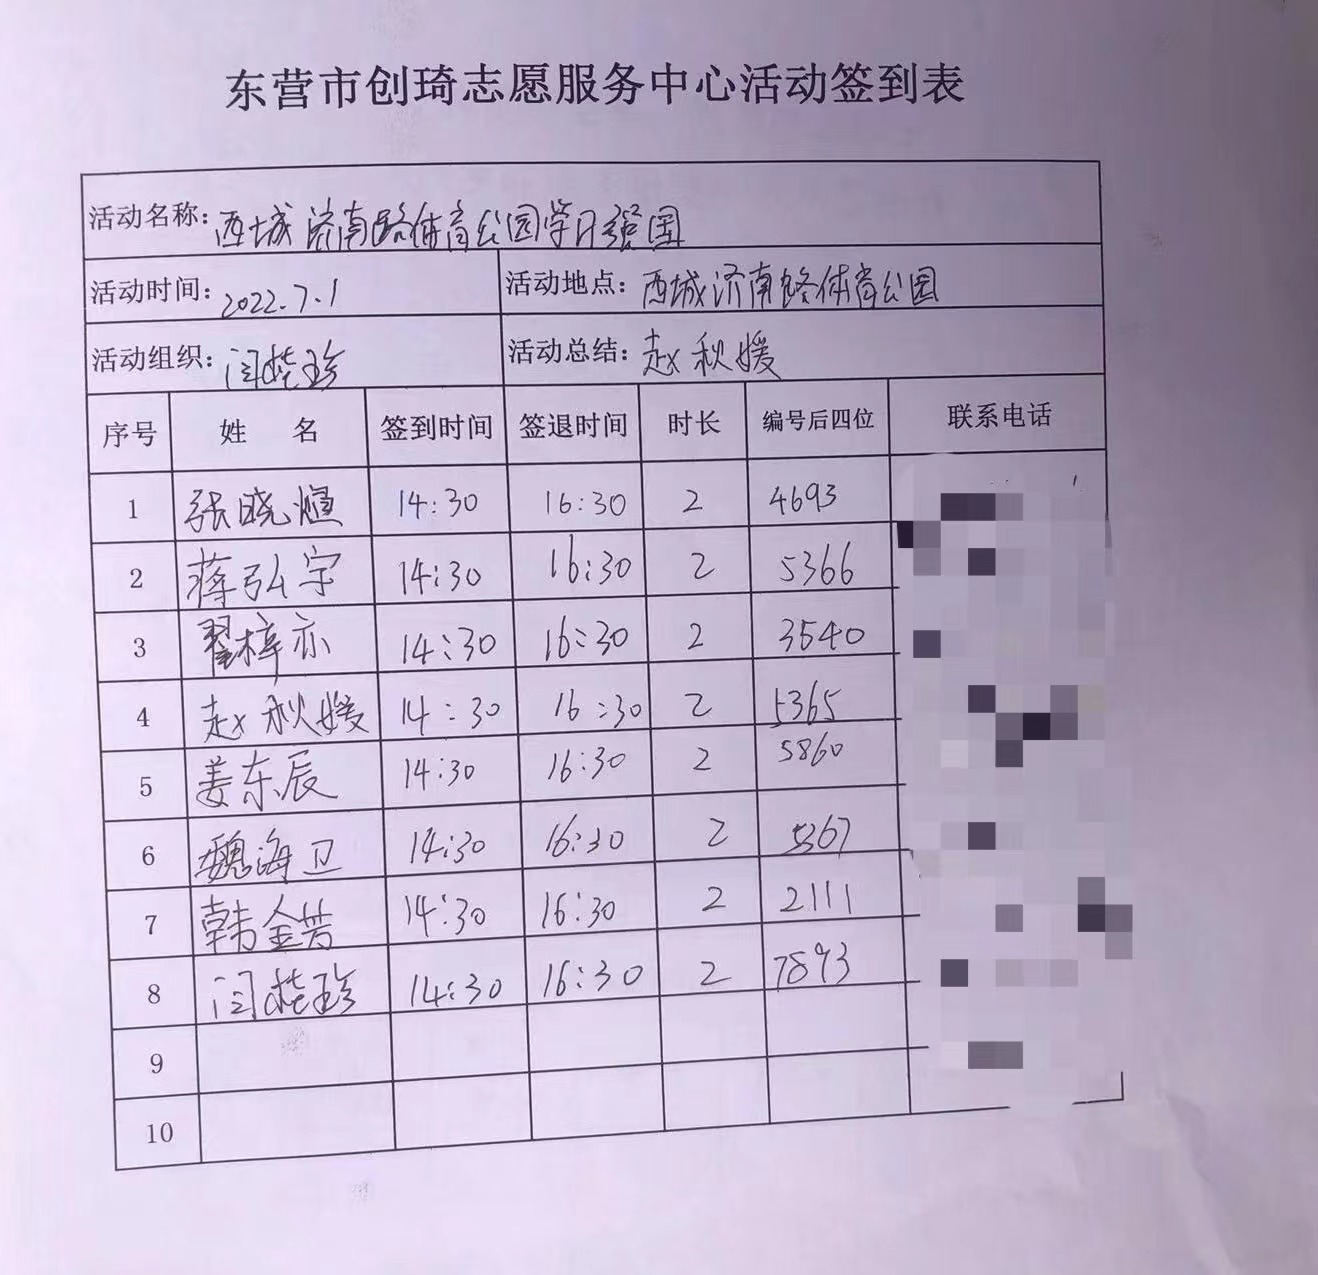 东营市创琦志愿服务中心活动签到表
活动名称: 西城济南路体育公园学习强国
活动时间: 2022.7.1 活动地点: 西城济南路体育公园
活动组织: 闫桂珍 活动总结: 赵秋媛
序号 姓 名 签到时间 签退时间 时长 编号后四位 联系电话
1 张晓煊 14:30 16:30 2 4693
2 蒋弘宇 14:30 16:30 2 5366
3 翟梓亦 14:30 16:30 2 3540
4 赵秋媛 14:30 16:30 2 5365
5 姜东辰 14:30 16:30 2 5860
6 魏海卫 14:30 16:30 2 5367
7 韩金芳 14:30 16:30 2 2111
8 闫桂珍 14:30 16:30 2 7893
9
10